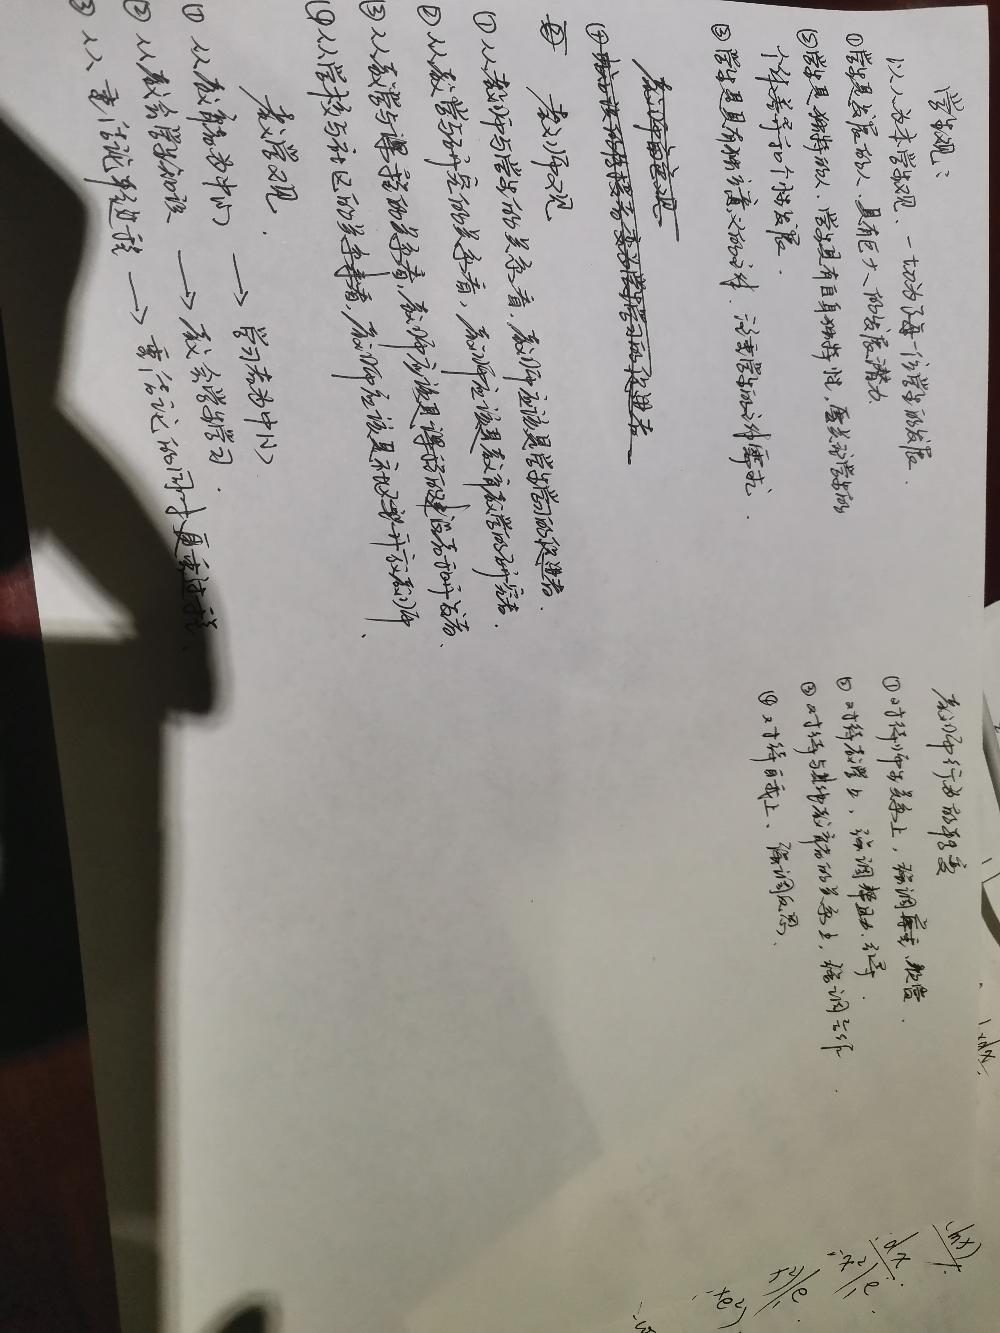 学生观：
以人为本学生观．一切为了每一位学生的发展
①学生是发展的人，具有巨大的发展潜力
②学生是独特的人，学生具有自身独特性，学生的
个体差异和个性发展．
③学生是具有独立意义的个体．注重学生的个体需求．
教师观
①从教师与学生的关系看，教师应该是学生学习的促进者．
②从教学与研究的关系看，教师应该是教育教学的研究者．
③从教学与课程的关系看，教师应该是课程的建设者和开发者．
④从学校与社区的关系看，教师应该是社区型开放教师．
教学观．
①从教育者为中心 → 学习者为中心
②从教会学生知识 → 教会学生学习．
③从重结论轻过程 → 重结论的同时更重过程．
教师行为的转变
①对待师生关系上，强调尊重、赞赏．
②对待教学上，强调帮助、引导．
③对待与其他教育者的关系上，强调合作
④对待自我上、强调反思、